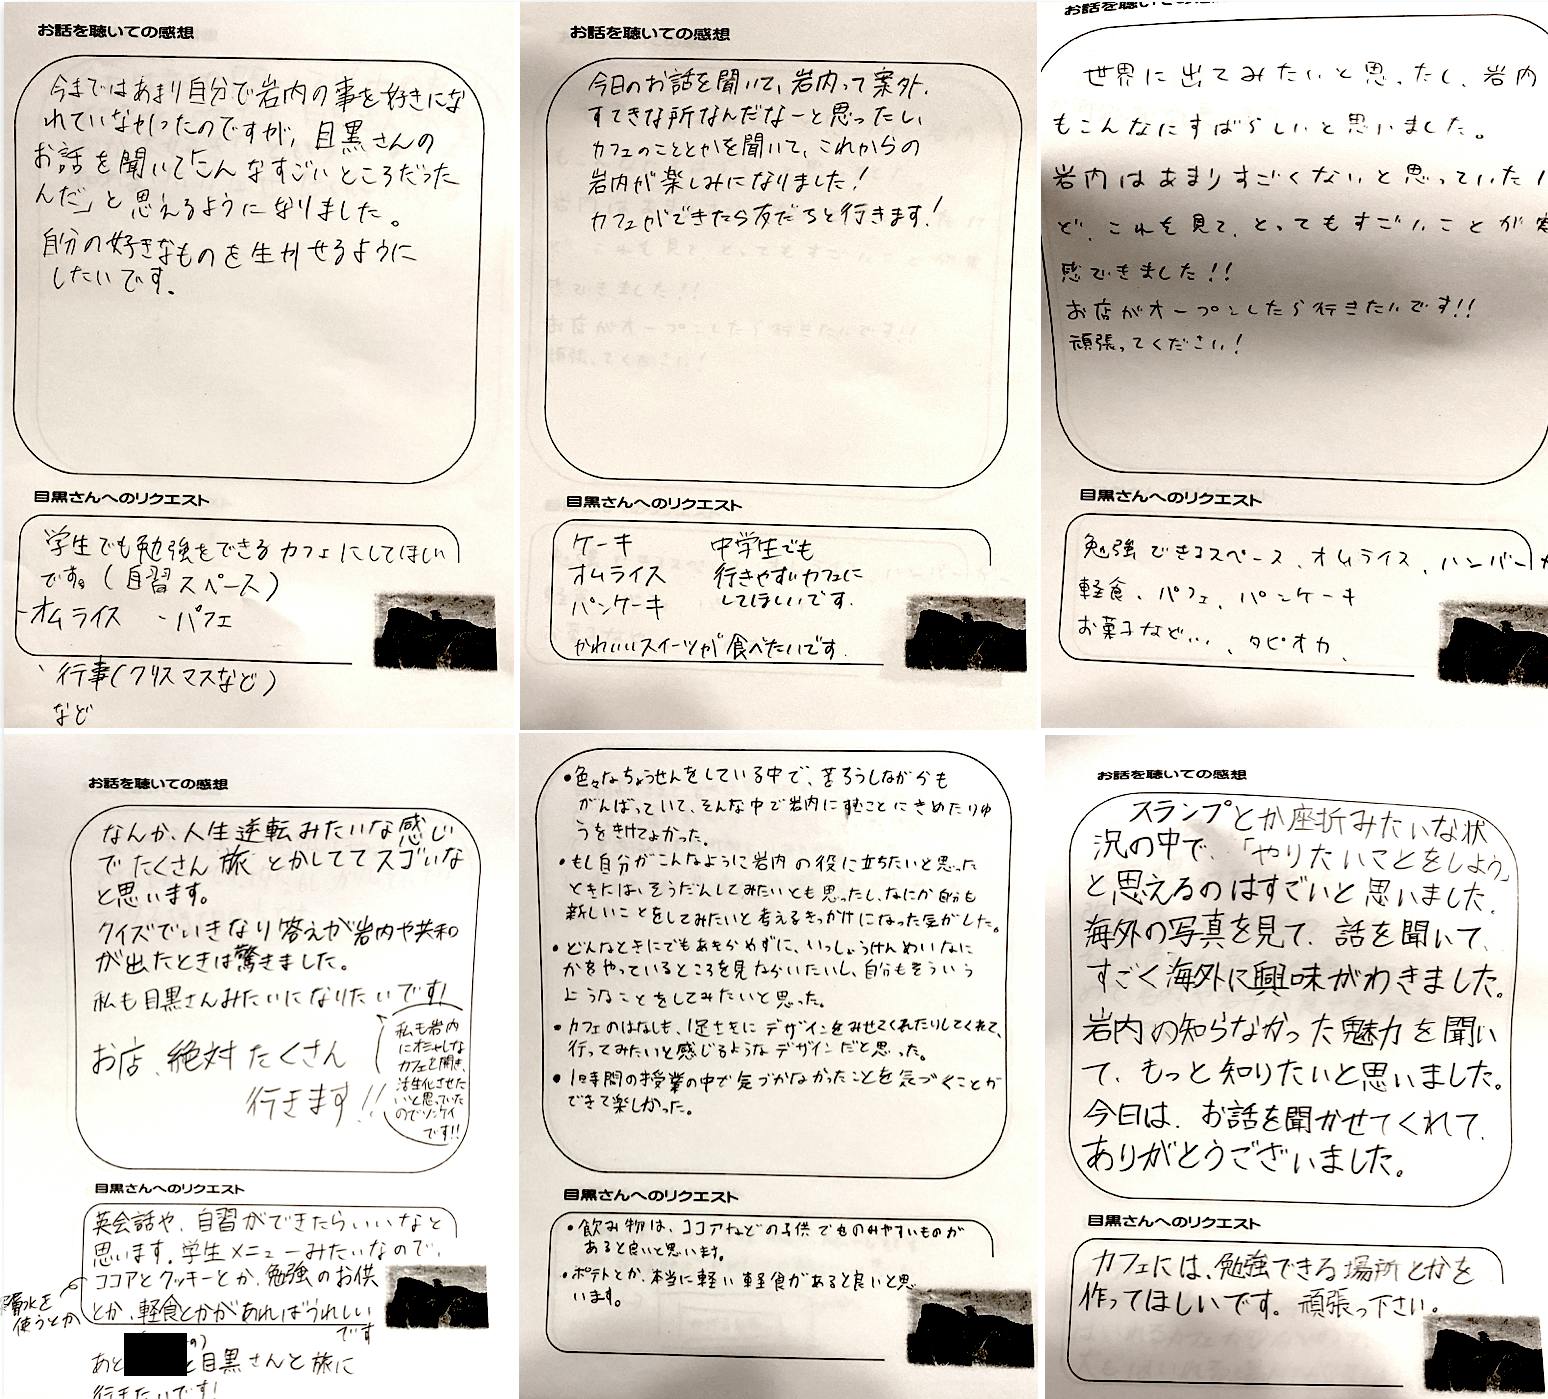 お話を聴いての感想
今まではあまり自分で岩内の事を好きにな
れていなかったのですが、目黒さんの
お話を聞いて「こんなすごいところだった
んだ」と思えるようになりました。
自分の好きなものを生かせるように
したいです。
目黒さんへのリクエスト
学生でも勉強をできるカフェにしてほしい
です。(自習スペース)
-オムライス -パフェ
、行事(クリスマスなど)
など
お話を聴いての感想
今日のお話を聞いて、岩内って案外、
すてきな所なんだなーと思ったし、
カフェのこととかを聞いて、これからの
岩内が楽しみになりました!
カフェができたら友だちと行きます!
目黒さんへのリクエスト
ケーキ
オムライス
パンケーキ
中学生でも
行きやすいカフェに
してほしいです.
かわいいスイーツが食べたいです.
お話を聴いての感想
世界に出てみたいと思ったし、岩内
もこんなにすばらしいと思いました。
岩内はあまりすごくないと思っていた
ど、これを見て、とってもすごいことが実
感できました!!
お店がオープンしたら行きたいです!!
頑張ってください!
目黒さんへのリクエスト
勉強できるスペース、オムライス、ハンバー
軽食、パフェ、パンケーキ
お菓子など...、タピオカ、
お話を聴いての感想
なんか、人生逆転みたいな感じ
でたくさん旅とかしててスゴいな
と思います。
クイズでいきなり答えが岩内や共和
が出たときは驚きました。
私も目黒さんみたいになりたいです!
お店、絶対たくさん
行きます!!
私も岩内
にオシャレな
カフェを開き、
活生化させた
いと思っていた
のでソンケイ
です!!
目黒さんへのリクエスト
英会話や、自習ができたらいいなと
思います。学生メニューみたいなので、
ココアとクッキーとか、勉強のお供
とか、軽食とかがあればうれしい
です
水を
使うとか
あと
と目黒さんと旅に
行きたいです!
・色々なちょうせんをしている中で、苦ろうしながらも
がんばっていて、そんな中で岩内にすむことにきめたりゆ
うをきけてよかった。
・もし自分がこんなように岩内の役に立ちたいと思った
ときには、そうだんしてみたいとも思ったし、なにか自分も
新しいことをしてみたいと考えるきっかけになった気がした。
・どんなときにでもあきらめずに、いっしょうけんめいなに
かをやっているところを見ならいたいし、自分もそういう
ようなことをしてみたいと思った。
・カフェのはなしも、1足さきにデザインをみせてくれたりしてくれて、
行ってみたいと感じるようなデザインだと思った。
・1時間の授業の中で気づかなかったことを気づくことが
できて楽しかった。
目黒さんへのリクエスト
・飲み物は、ココアなどの子供でものみやすいものが
あると良いと思います。
・ポテトとか、本当に軽い軽食があると良いと思
います。
お話を聴いての感想
スランプとか座折みたいな状
況の中で、「やりたいことをしよう」
と思えるのはすごいと思いました。
海外の写真を見て、話を聞いて、
すごく海外に興味がわきました。
岩内の知らなかった魅力を聞い
て、もっと知りたいと思いました。
今日は、お話を聞かせてくれて、
ありがとうございました。
目黒さんへのリクエスト
カフェには、勉強できる場所とかを
作ってほしいです。頑張っ下さい。